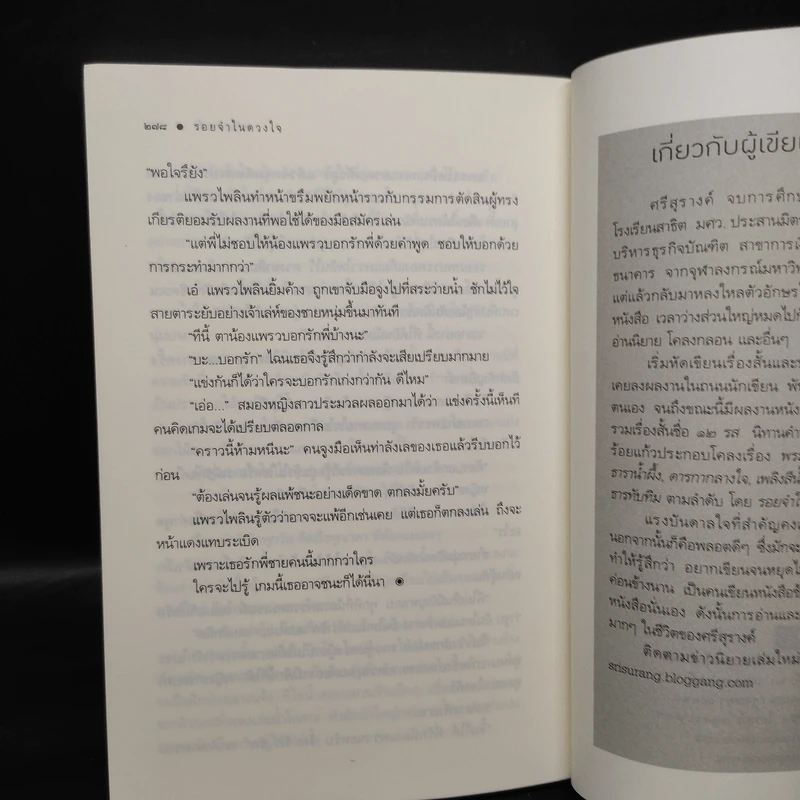 ๒๗๘ ● รอยจำในดวงใจ
“พอใจรึยัง”
แพรวไพลินทำหน้าขรึมพยักหน้าราวกับกรรมการตัดสินผู้ทรง
เกียรติยอมรับผลงานที่พอใช้ได้ของมือสมัครเล่น
“แต่พี่ไม่ชอบให้น้องแพรวบอกรักพี่ด้วยคำพูด ชอบให้บอกด้วย
การกระทำมากกว่า”
เอ๋ แพรวไพลินยิ้มค้าง ถูกเขาจับมือจูงไปที่สระว่ายน้ำ ชักไม่ไว้ใจ
สายตาระยับอย่างเจ้าเล่ห์ของชายหนุ่มขึ้นมาทันที
“ทีนี้ ตาน้องแพรวบอกรักพี่บ้างนะ”
“บะ...บอกรัก” ไฉนเธอจึงรู้สึกว่ากำลังจะเสียเปรียบมากมาย
“แข่งกันก็ได้ว่าใครจะบอกรักเก่งกว่ากัน ดีไหม”
“เอ่อ...” สมองหญิงสาวประมวลผลออกมาได้ว่า แข่งครั้งนี้เห็นที
คนคิดเกมจะได้เปรียบตลอดกาล
“คราวนี้ห้ามหนีนะ” คนจูงมือเห็นท่าลังเลของเธอแล้วรีบบอกไว้
ก่อน
“ต้องเล่นจนรู้ผลแพ้ชนะอย่างเด็ดขาด ตกลงมั้ยครับ”
แพรวไพลินรู้ตัวว่าอาจจะแพ้อีกเช่นเคย แต่เธอก็ตกลงเล่น ถึงจะ
หน้าแดงแทบระเบิด
เพราะเธอรักพี่ชายคนนี้มากกว่าใคร
ใครจะไปรู้ เกมนี้เธออาจชนะก็ได้นี่นา ◉
เกี่ยวกับผู้เขียน
ศรีสุรางค์ จบการศึกษา
โรงเรียนสาธิต มศว. ประสานมิตร
บริหารธุรกิจบัณฑิต สาขาการเงิน
ธนาคาร จากจุฬาลงกรณ์มหาวิท
แต่แล้วกลับมาหลงใหลตัวอักษร
หนังสือ เวลาว่างส่วนใหญ่หมดไปกั
อ่านนิยาย โคลงกลอน และอื่นๆ
เริ่มหัดเขียนเรื่องสั้นและบ
เคยลงผลงานในถนนนักเขียน พัน
ตนเอง จนถึงขณะนี้มีผลงานหนัง
รวมเรื่องสั้นชื่อ ๑๒ รส นิทานคำ
ร้อยแก้วประกอบโคลงเรื่อง พระ
ธาราน้ำผึ้ง, ดารกากลางใจ, เพลิงสีน้ำ
ธารทับทิม ตามลำดับ โดย รอยจำใ
แรงบันดาลใจที่สำคัญคงเ
นอกจากนั้นก็คือพลอตดีๆ ซึ่งมักจะ
ทำให้รู้สึกว่า อยากเขียนจนหยุดไ
ค่อนข้างนาน เป็นคนเขียนหนังสือช้
หนังสือนั่นเอง ดังนั้นการอ่านและ
มากๆ ในชีวิตของศรีสุรางค์
ติดตามข่าวนิยายเล่มใหม่
srisurang.bloggang.com